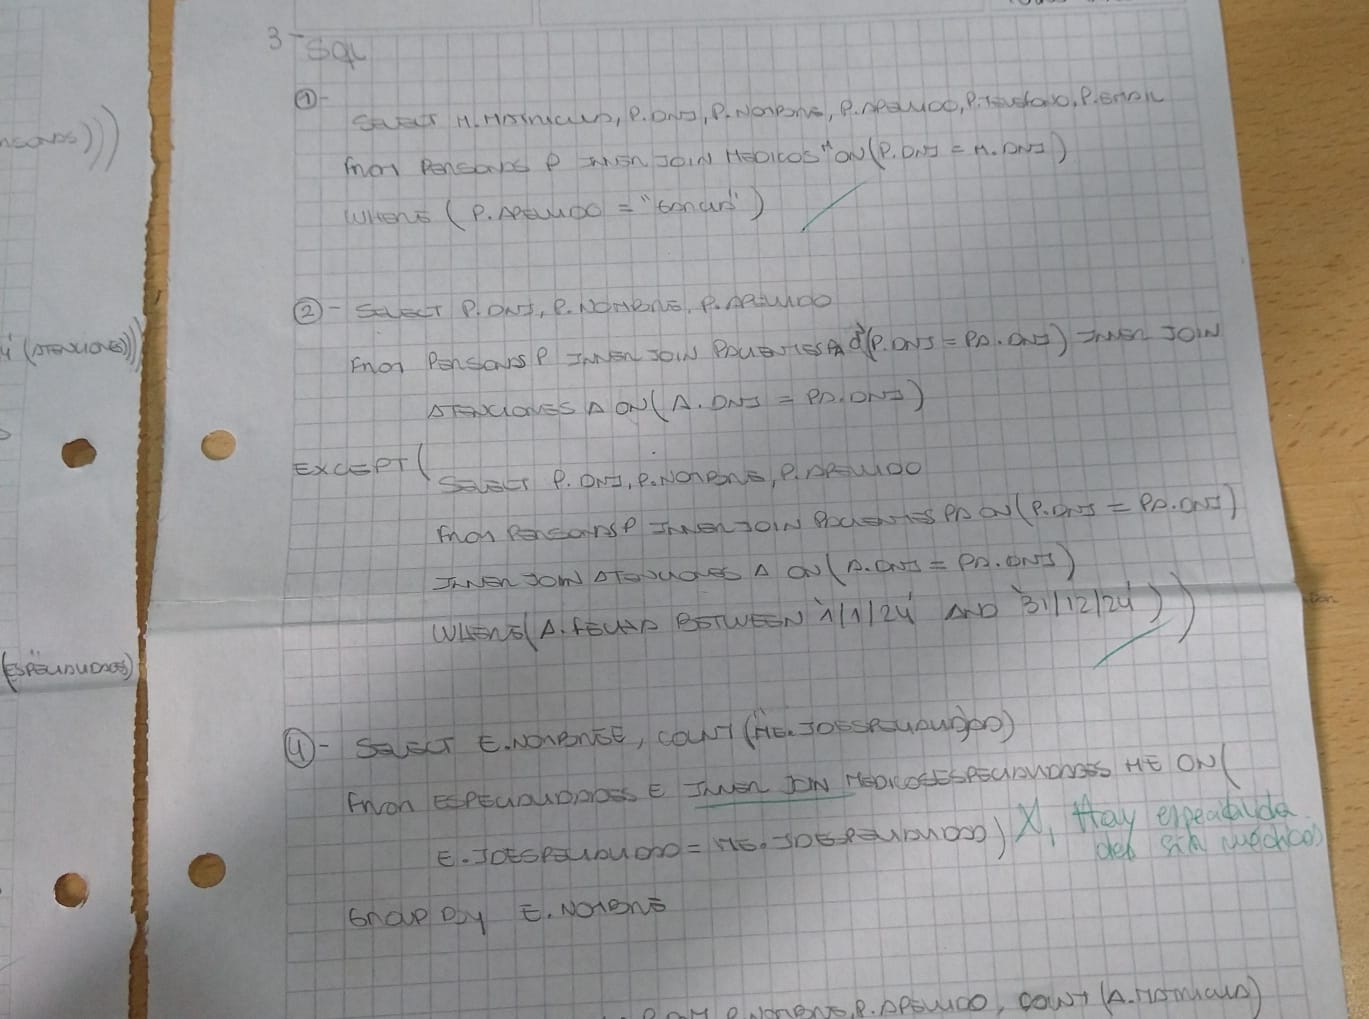 nsonas)))
(Atenciones)))
(Especialidades)
3- SQL
①-
Select M.Matricula, P.DNI, P.Nombre, P.Apellido, P.Telefono, P.Email
From Personas P Inner JOIN Medicos M ON (P.DNI = M.DNI)
Where (P.Apellido = "Garcia")
②- Select P.DNI, P.Nombre, P.Apellido
From Personas P Inner JOIN Pacientes PA (P.DNI = PA.DNI) Inner JOIN
Atenciones A ON (A.DNI = PA.DNI)
EXCEPT (
Select P.DNI, P.Nombre, P.Apellido
From Personas P Inner JOIN Pacientes PA ON (P.DNI = PA.DNI)
Inner JOIN Atenciones A ON (A.DNI = PA.DNI)
Where (A.Fecha BETWEEN '1/1/24' AND '31/12/24'))
④- Select E.Nombre, COUNT (ME.IDEspecialidad)
From Especialidades E Inner JOIN MedicosEspecialidades ME ON (
E.IDEspecialidad = ME.IDEspecialidad) X, Hay especialida
des sin médicos
Group By E.Nombre
P.Nombre, P.Apellido, COUNT (A.Matricula)